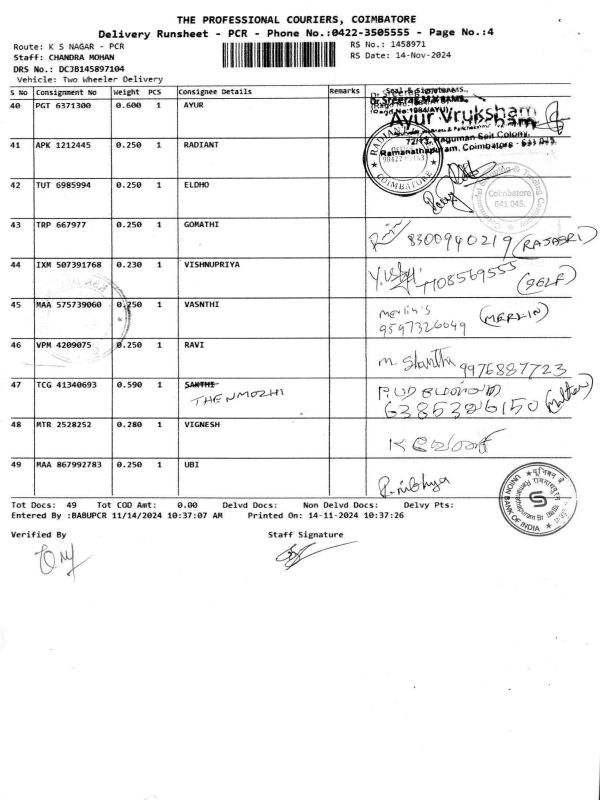 THE PROFESSIONAL COURIERS, COIMBATORE
Delivery Runsheet - PCR - Phone No.:0422-3505555 - Page No.:4
Route: K S NAGAR - PCR RS No.: 1458971
Staff: CHANDRA MOHAN RS Date: 14-Nov-2024
DRS No.: DCJB145897104
Vehicle: Two Wheeler Delivery
S No Consignment No Weight PCS Consignee Details Remarks Seal & Signature
40 PGT 6371300 0.600 1 AYUR
Ayur Vruksham
72/13, Raguman Sait Colony,
Ramanathapuram, Coimbatore
41 APK 1212445 0.250 1 RADIANT
RADIANT
COIMBATORE
42 TUT 6985994 0.250 1 ELDHO
Coimbatore
641 045.
43 TRP 667977 0.250 1 GOMATHI
8300940219 (RAJASRI)
44 IXM 507391768 0.230 1 VISHNUPRIYA
(SELF)
45 MAA 575739060 0.250 1 VASNTHI
Merlin's
9597326049 (MERLIN)
46 VPM 4209075 0.250 1 RAVI
M. Shantha 9976887723
47 TCG 41340693 0.590 1 SAKTHI
THENMOZHI
6385326150 (Mother)
48 MTR 2528252 0.280 1 VIGNESH
49 MAA 867992783 0.250 1 UBI
R. nibhya
UNION BANK OF INDIA
Tot Docs: 49 Tot COD Amt: 0.00 Delvd Docs: Non Delvd Docs: Delvy Pts:
Entered By :BABUPCR 11/14/2024 10:37:07 AM Printed On: 14-11-2024 10:37:26
Verified By Staff Signature